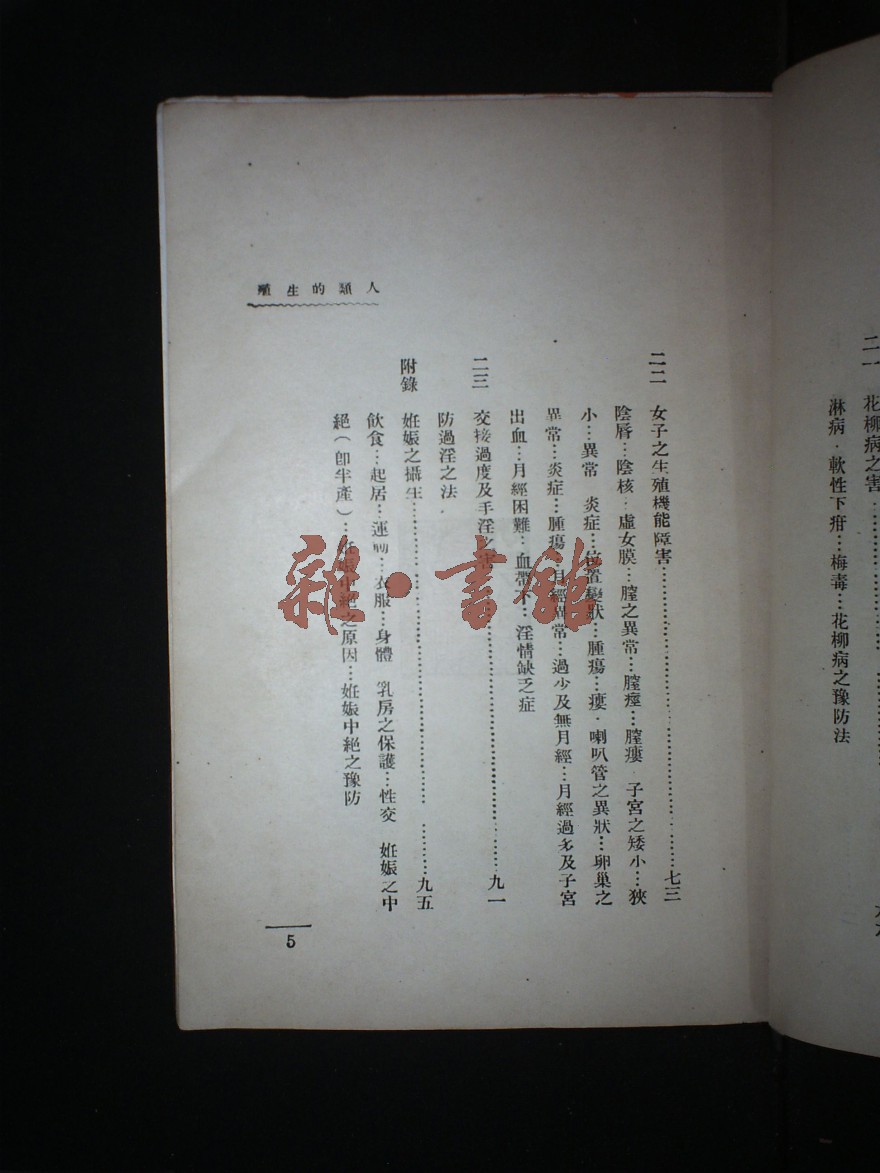 二一　花柳病之害
淋病．軟性下疳…梅毒…花柳病之豫防法
人類的生殖
二二　女子之生殖機能障害……七三
陰唇…陰核．處女膜…膣之異常…膣痙…膣瘻　子宮之矮小…狹
小…異常　炎症…位置變狀…腫瘍…瘻．喇叭管之異狀…卵巢之
異常…炎症…腫瘍…月經異常…過少及無月經…月經過多及子宮
出血…月經困難…血帶下…淫情缺乏症
二三　交接過度及手淫之害……九一
防過淫之法．
附錄　妊娠之攝生……九五
飲食…起居…運動…衣服…身體　乳房之保護…性交　妊娠之中
絕（卽半產）…妊娠中絕之原因…妊娠中絕之豫防
5
雜·書館